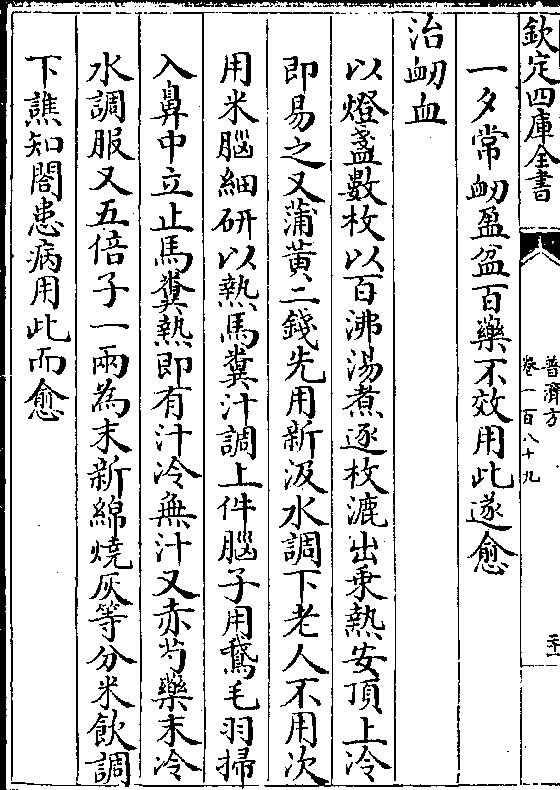 欽定四庫全書
普濟方
卷一百八十九
一夕常衂盈盆百藥不效用此遂愈
治衂血
以燈盞數枚以百沸湯煮逐枚漉出乗熱安頂上冷
即易之又蒲黄二錢先用新汲水調下老人不用次
用米腦細研以熱馬糞汁調上件腦子用鵞毛羽掃
入鼻中立止馬糞熱即有汁冷無汁又赤芍藥末冷
水調服又五倍子一兩為末新綿燒灰等分米飲調
下譙知閤患病用此而愈